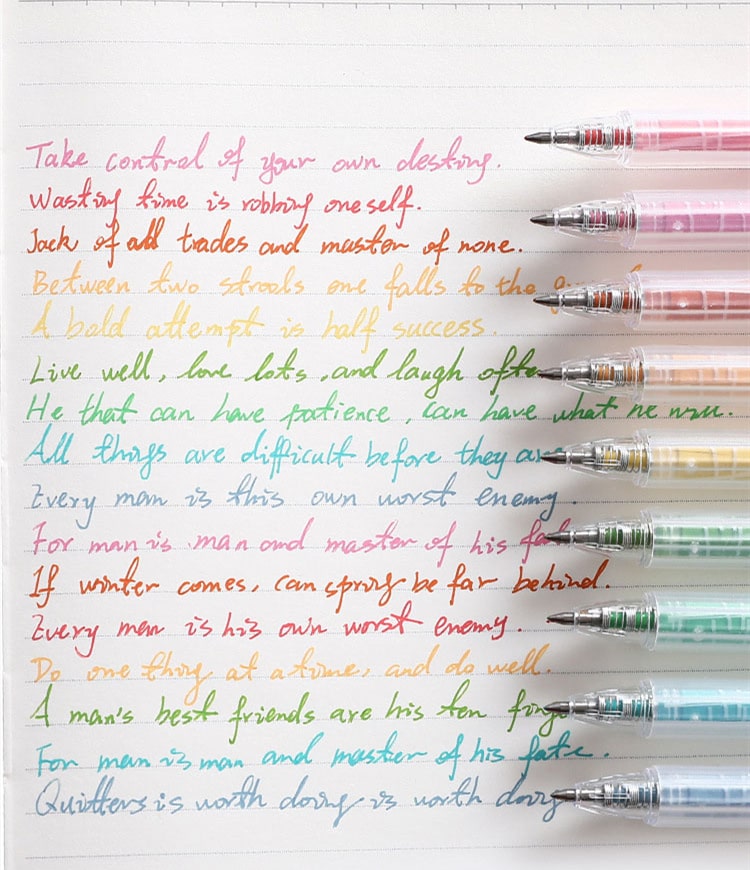 Take control of your own destiny.
Wasting time is robbing oneself.
Jack of all trades and master of none.
Between two strools one falls to the
A bald attempt is half success.
Live well, love lots, and laugh often
He that can have patience, can have what he
All things are difficult before they are
Every man is this own worst enemy.
For man is man and master of his
If winter comes, can spring be far behind.
Every man is his own worst enemy.
Do one thing at a time, and do well.
A man's best friends are his ten
For man is man and master of his fate.
Quitters is worth doing is worth doing